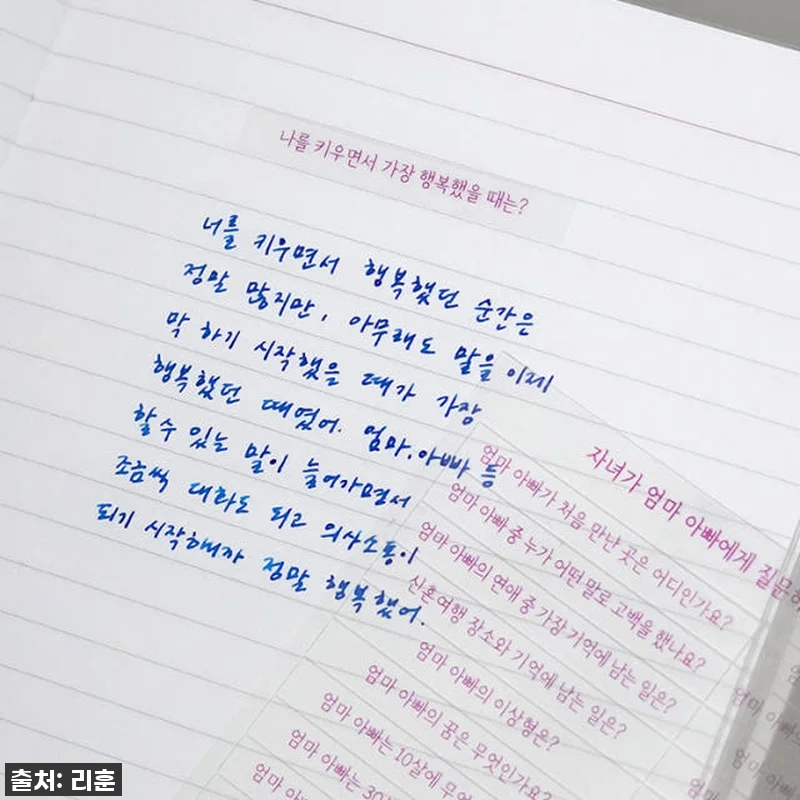 나를 키우면서 가장 행복했을 때는?
너를 키우면서 행복했던 순간은
정말 많지만, 아무래도 말을 이제
막 하기 시작했을 때가 가장
행복했던 때였어. 엄마, 아빠 등
할 수 있는 말이 늘어가면서
조금씩 대화도 되고 의사소통이
되기 시작해니까 정말 행복했어.
자녀가 엄마 아빠에게 질문
엄마 아빠가 처음 만난 곳은 어디인가요?
엄마 아빠 중 누가 어떤 말로 고백을 했나요?
엄마 아빠의 연애 중 가장 기억에 남는 일은?
신혼여행 장소와 기억에 남는 일은?
엄마 아빠의 이상형은?
엄마 아빠의 꿈은 무엇인가요?
엄마 아빠는 10살에
엄마 아빠는
엄마
출처: 리훈